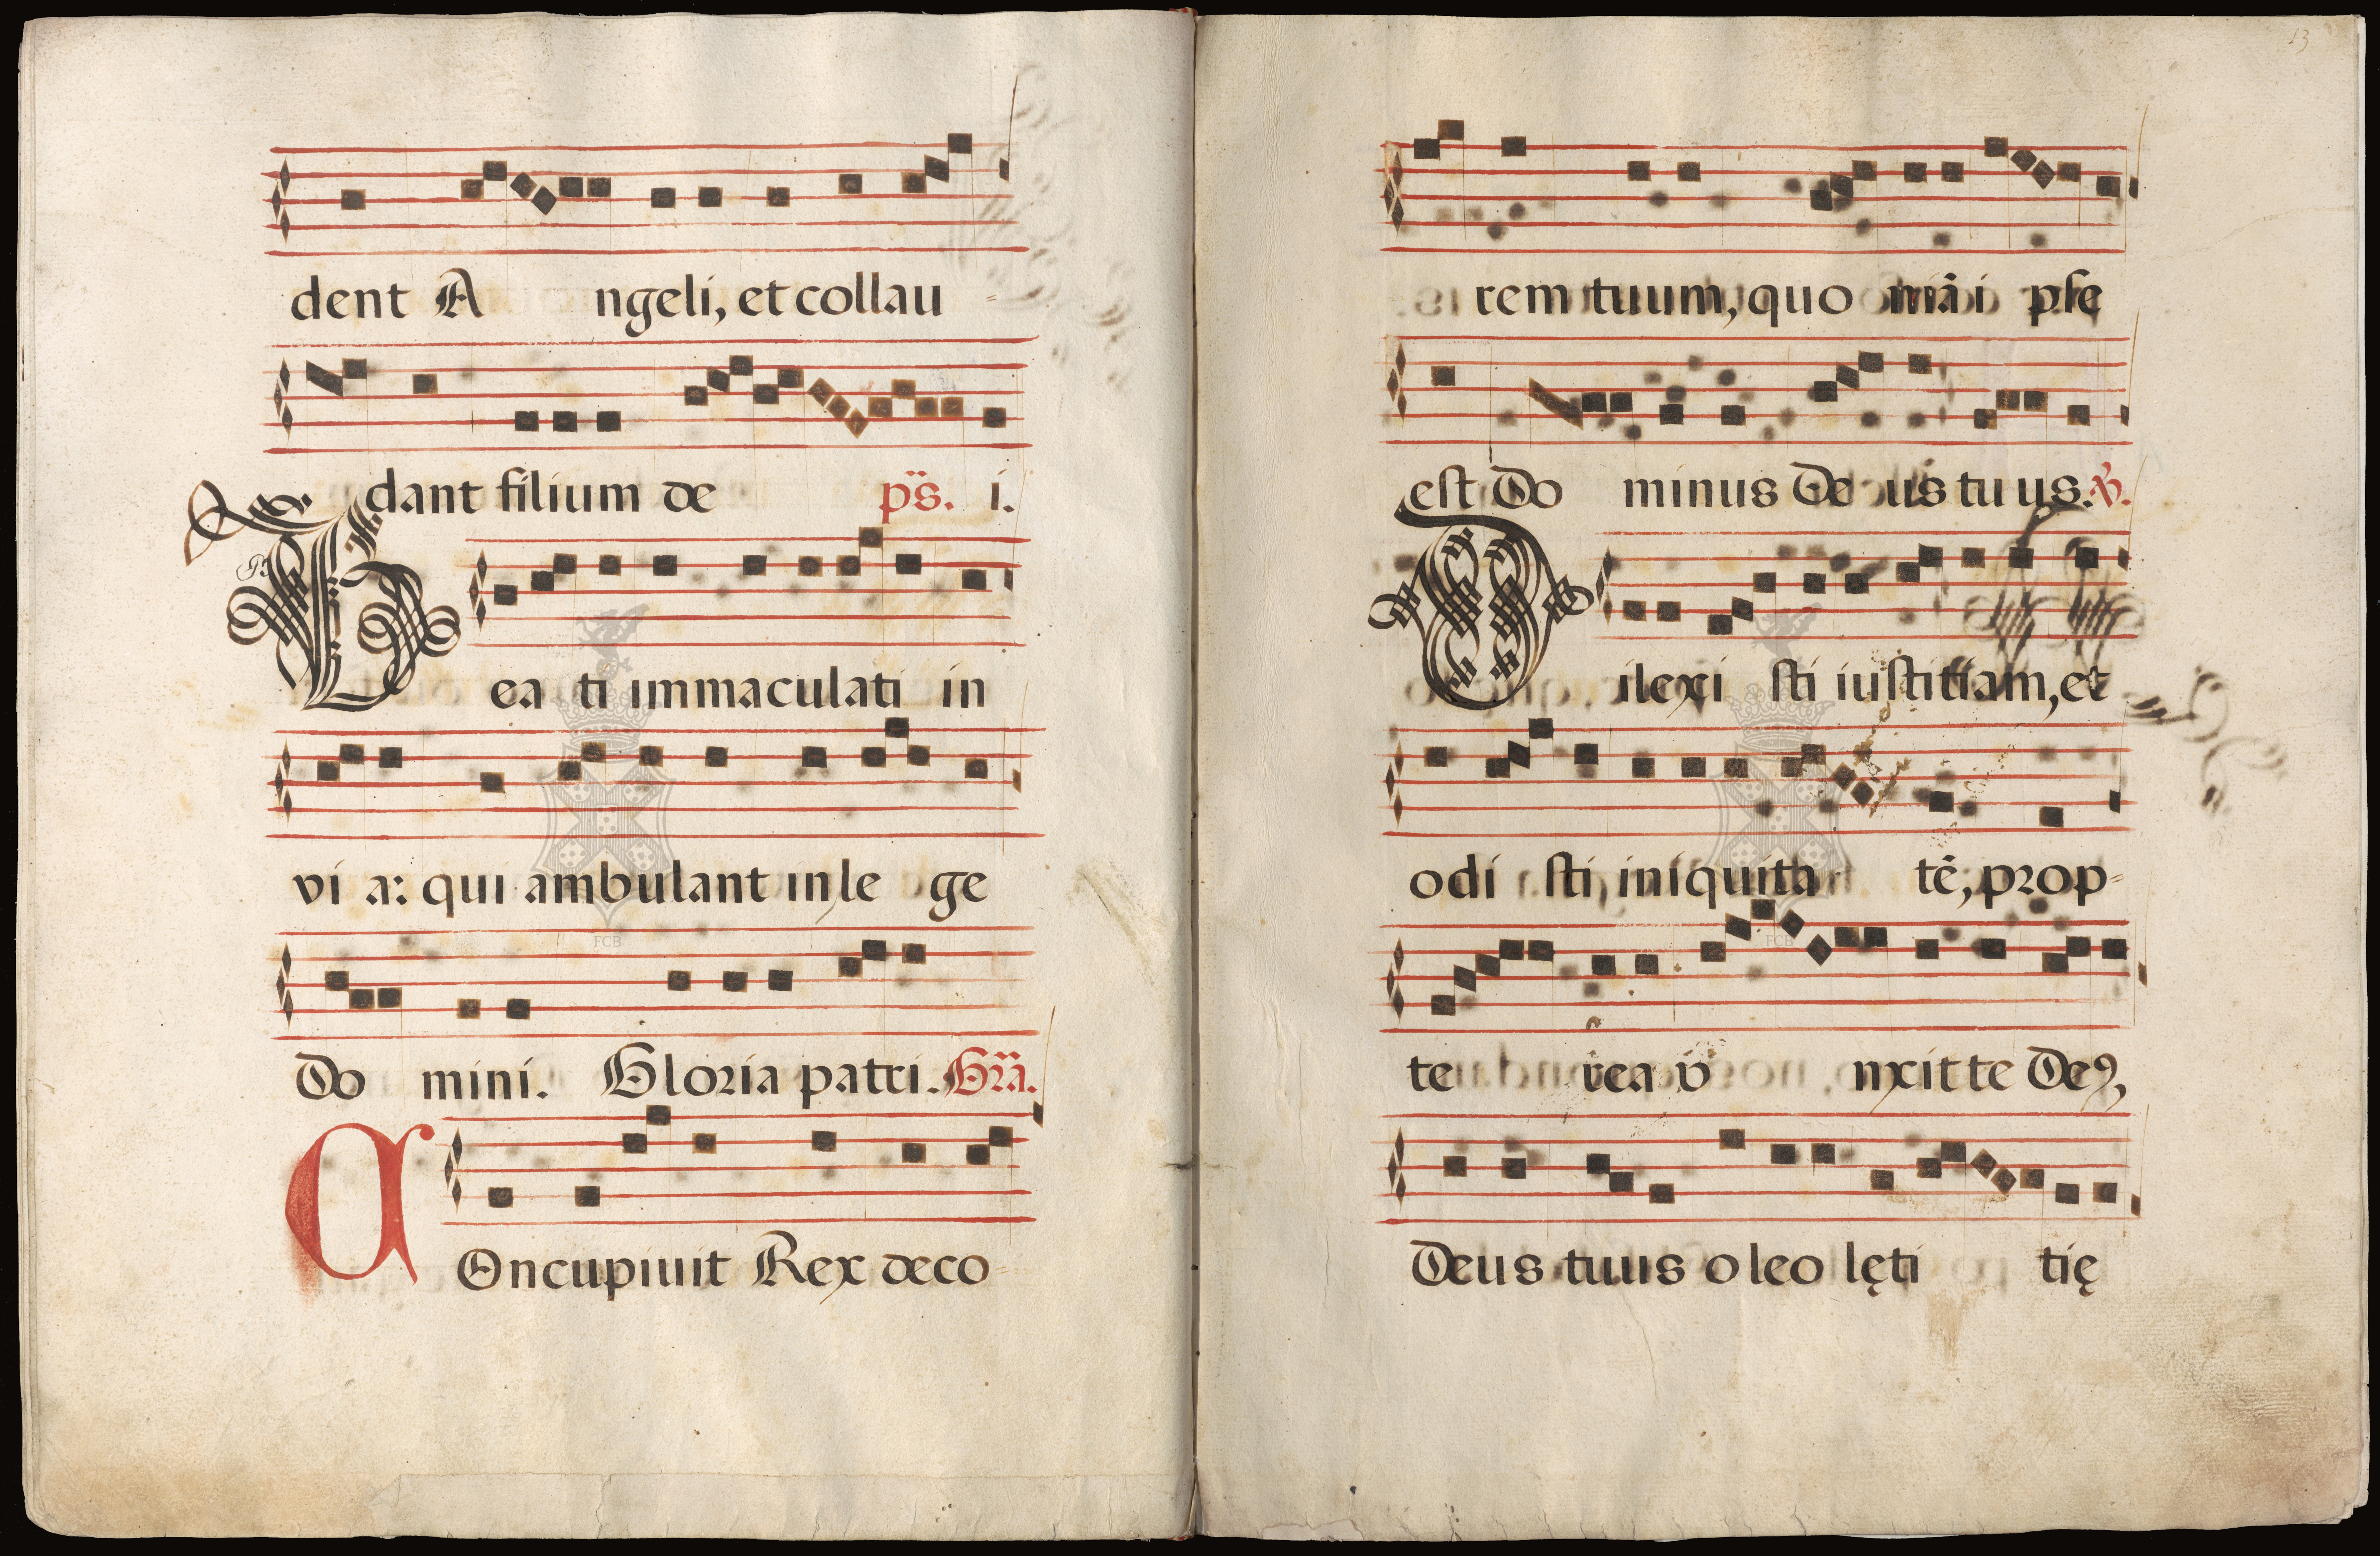 dent A ngeli, et collau-
dant filium de ps. i.
Bea ti immaculati in
vi a: qui ambulant in le ge
Do mini. Gloria patri. Grã.
COncupiuit Rex deco-
13
rem tuum, quo niã i pse
est Do minus De us tu us. ℣.
Dilexi sti iustitiam, et
odi sti iniquita tẽ, prop-
te rea v nxit te Deꝰ,
Deus tuus o leo lęti tię
FCB
FCB